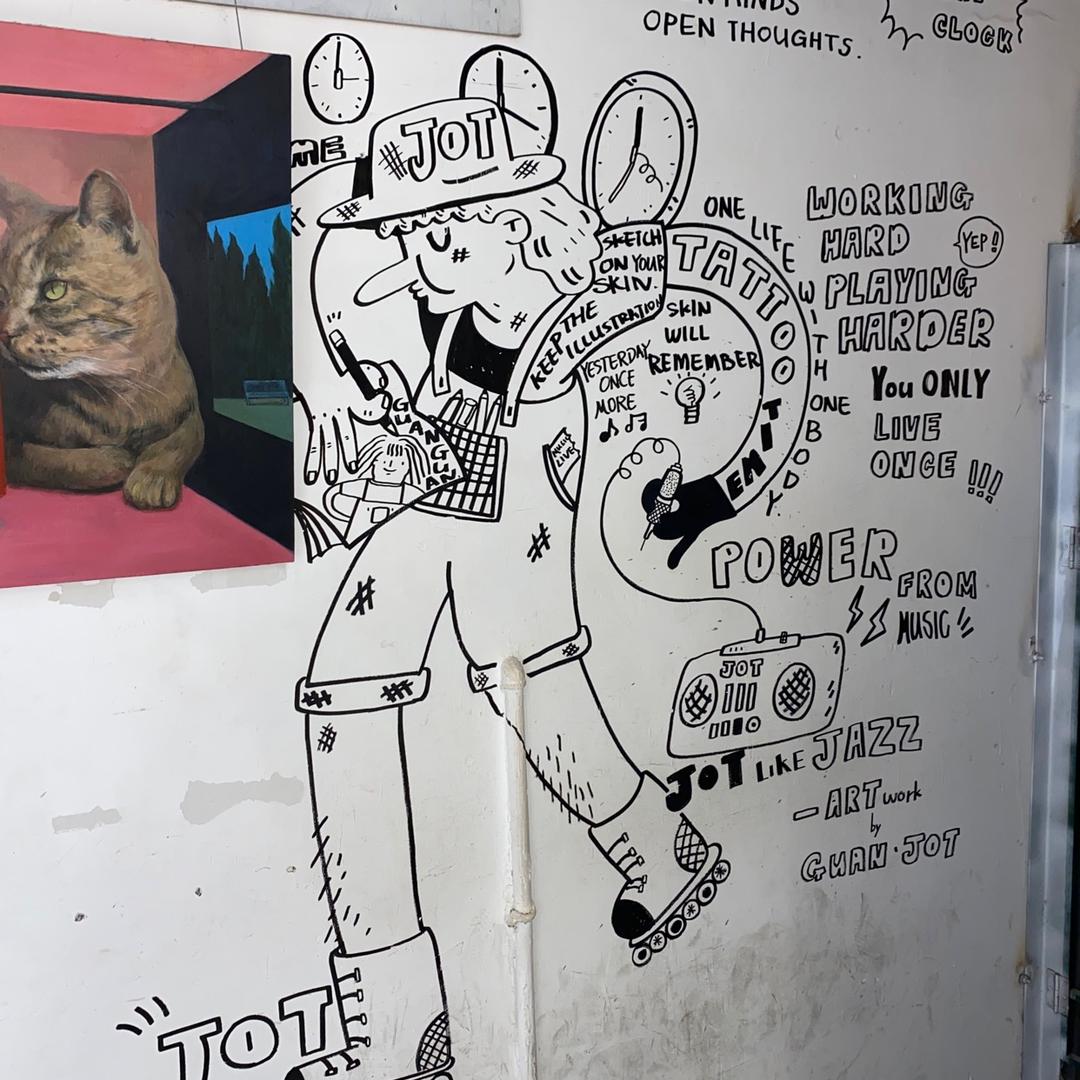 OPEN THOUGHTS.
CLOCK
ME
JOT
SKETCH
ON YOUR
SKIN.
KEEP THE
ILLUSTRATION
TATTOO TIME
ONE LIFE WITH ONE BODY.
SKIN
WILL
REMEMBER
YESTERDAY
ONCE
MORE
GUANGUAN
MUSIC
LIVE
WORKING
HARD
YEP!
PLAYING
HARDER
You ONLY
LIVE
ONCE !!!
POWER
FROM
MUSIC
JOT
JOT LIKE JAZZ
— ART work
by
GUAN·JOT
JOT